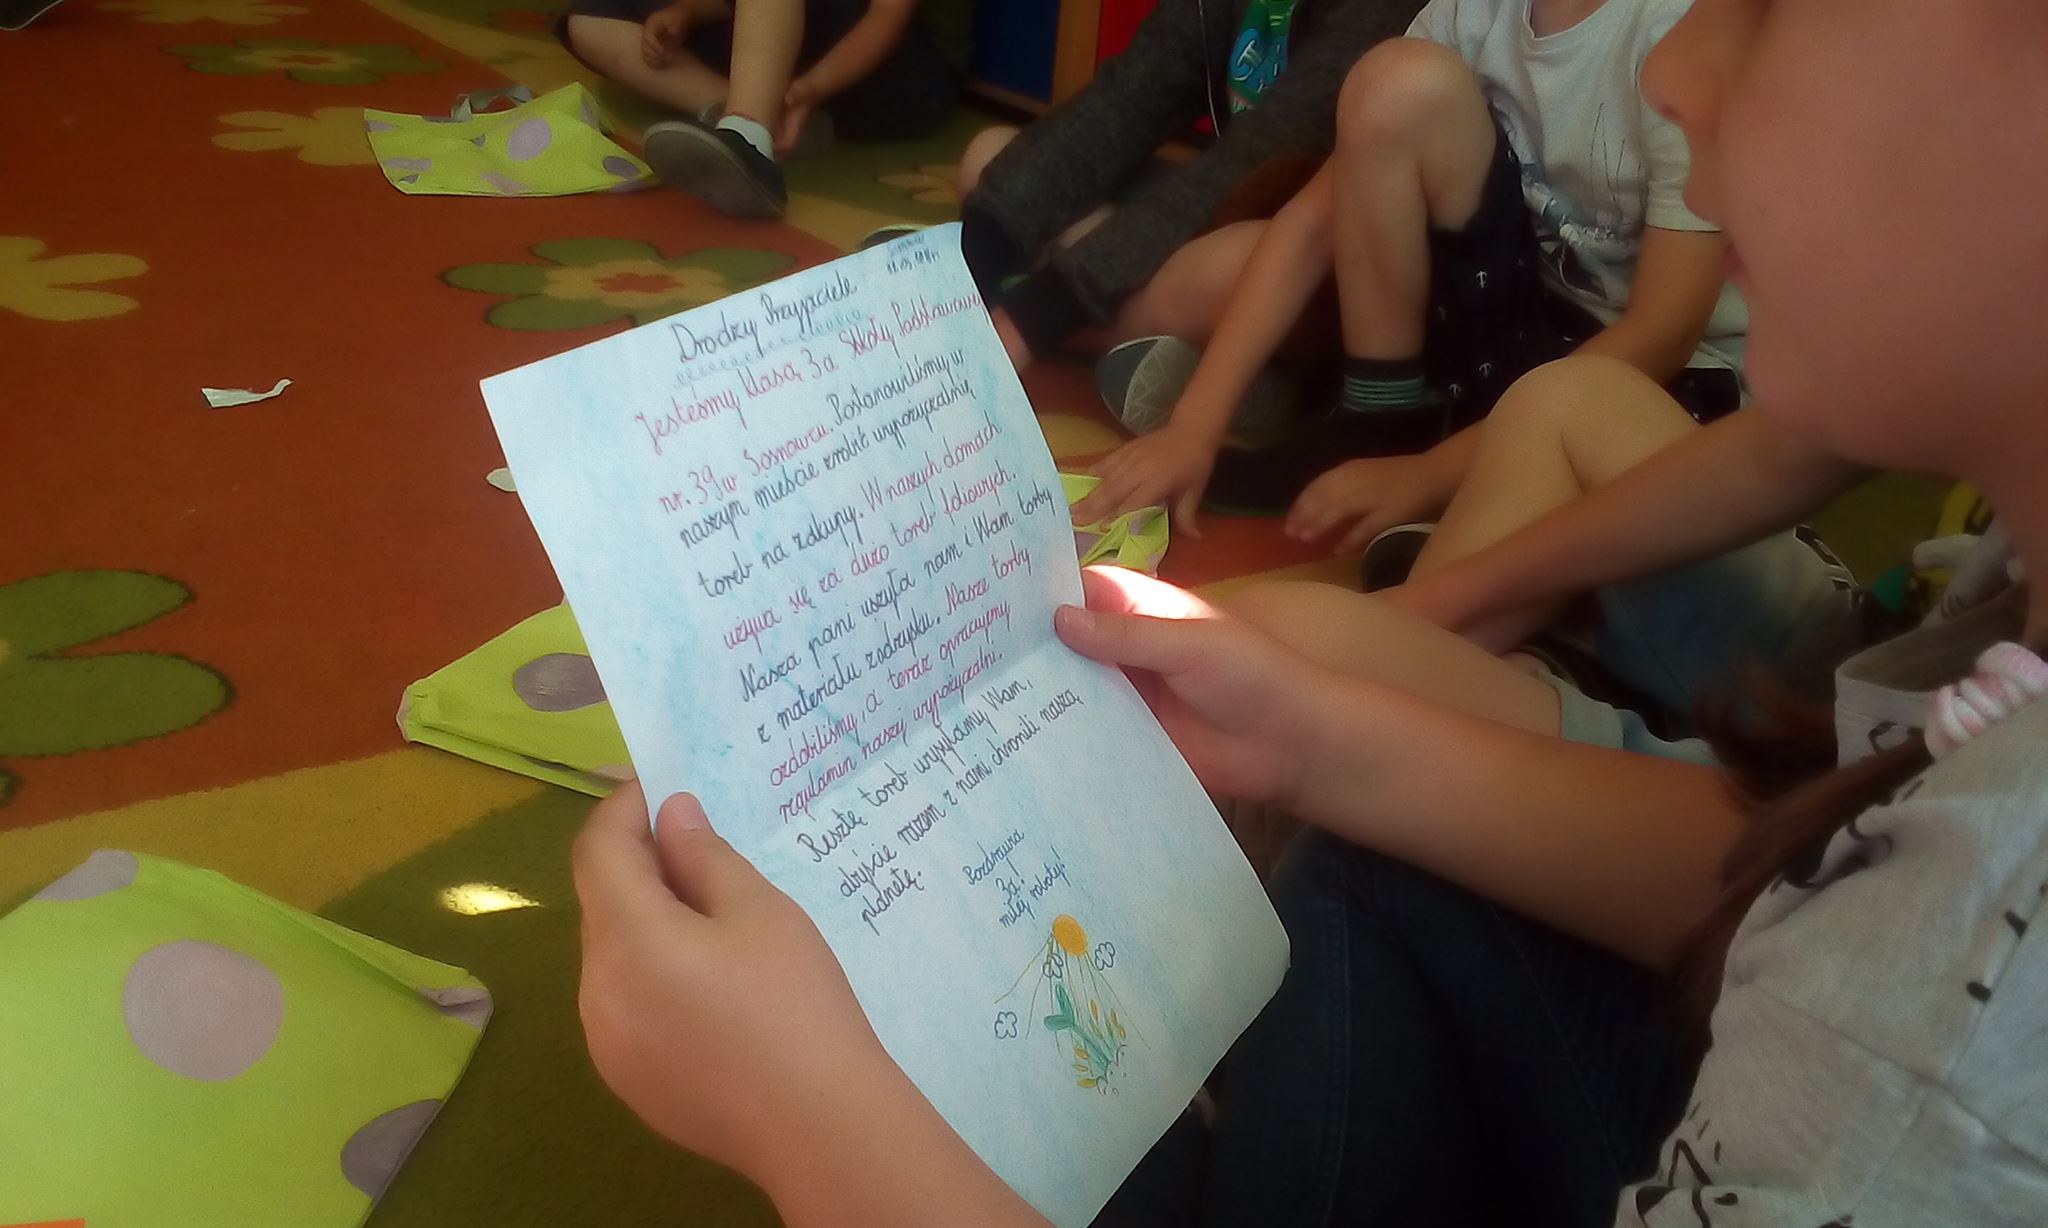 Drodzy Przyjaciele
Jesteśmy klasą 3a Szkoły Podstawowej
nr. 39 w Sosnowcu. Postanowiliśmy w
naszym mieście zrobić wypożyczalnię
toreb na zakupy. W naszych domach
używa się za dużo toreb foliowych.
Nasza pani uszyła nam i Wam torby
z materiału zadrysku. Nasze torby
ozdobiliśmy, a teraz opracujemy
regulamin naszej wypożyczalni.
Resztę toreb wysyłamy Wam,
abyście razem z nami chronili naszą
planetę.
Pozdrawia
3a!
miłej roboty!